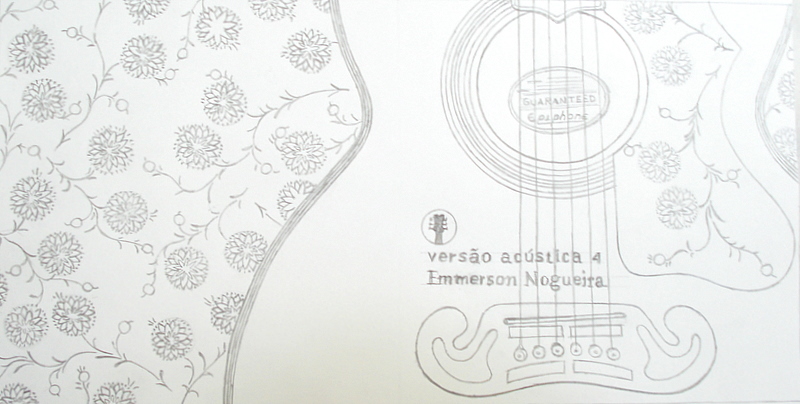 GUARANTEED
Epiphone
versão acústica 4
Emmerson Nogueira